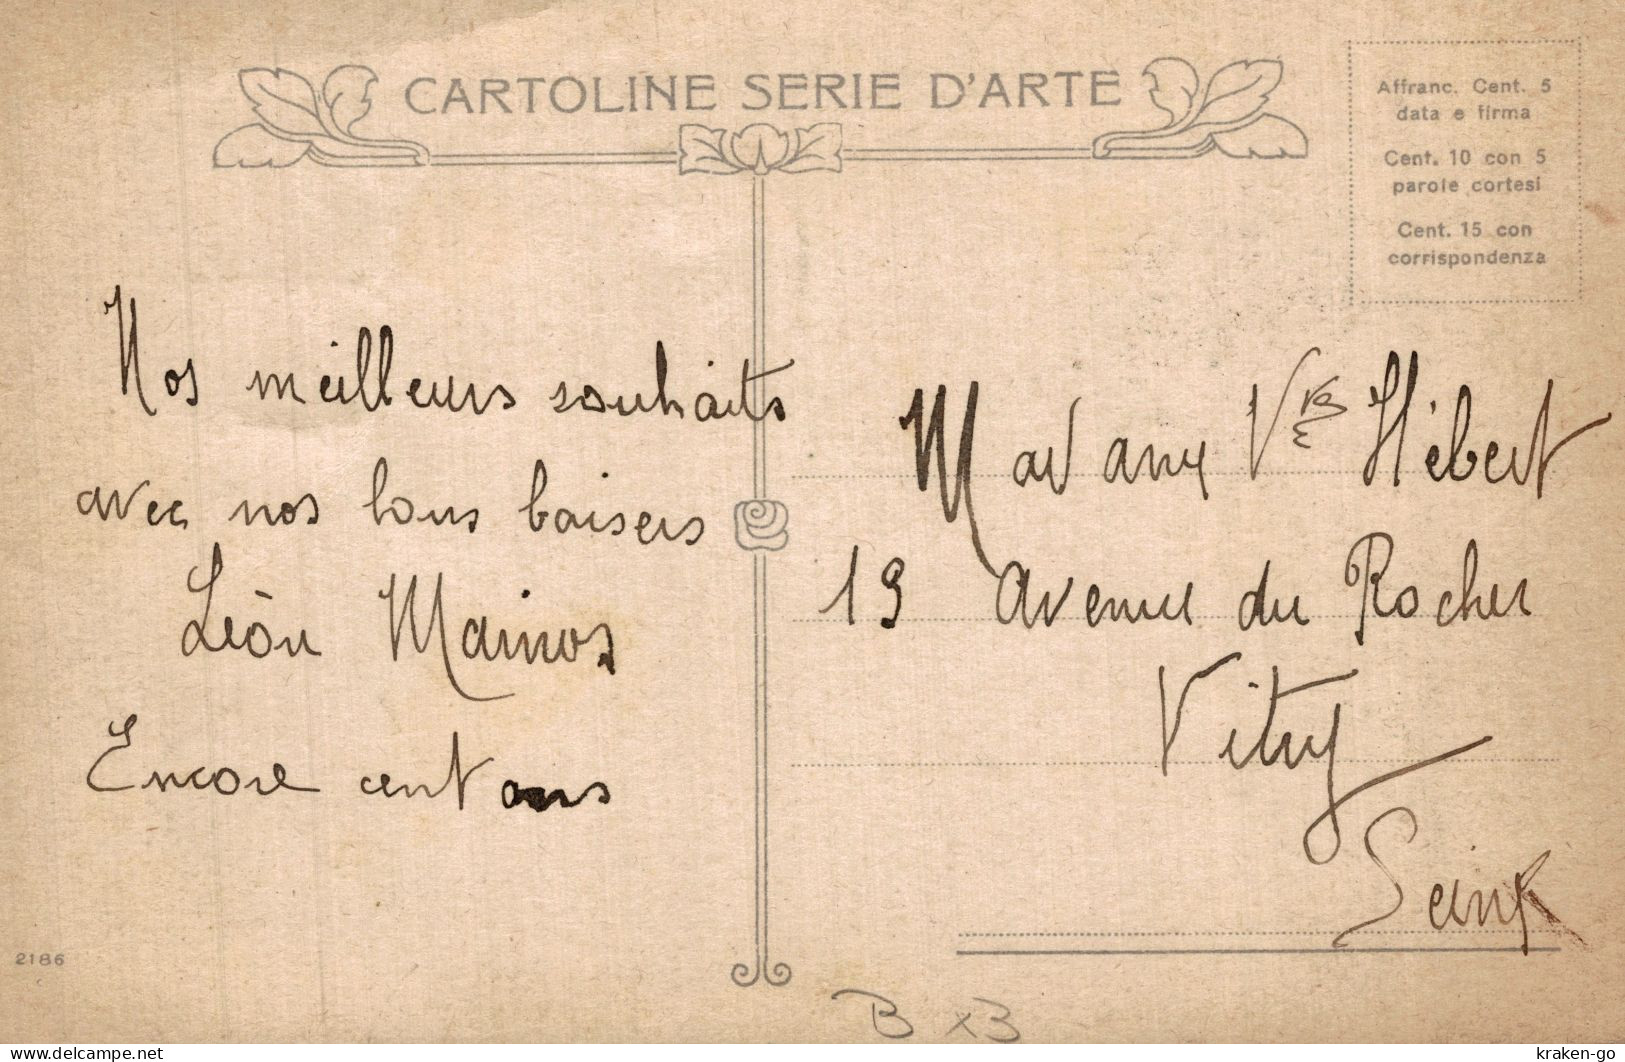 CARTOLINE SERIE D'ARTE
Affranc. Cent. 5
data e firma
Cent. 10 con 5
parole cortesi
Cent. 15 con
corrispondenza
Nos meilleurs souhaits
avec nos bons baisers
Léon
Encore cent ans
Madame Vve Hébert
19 avenue du Rocher
Vitry
Seine
2186
B x3
kraken-go
delcampe.net